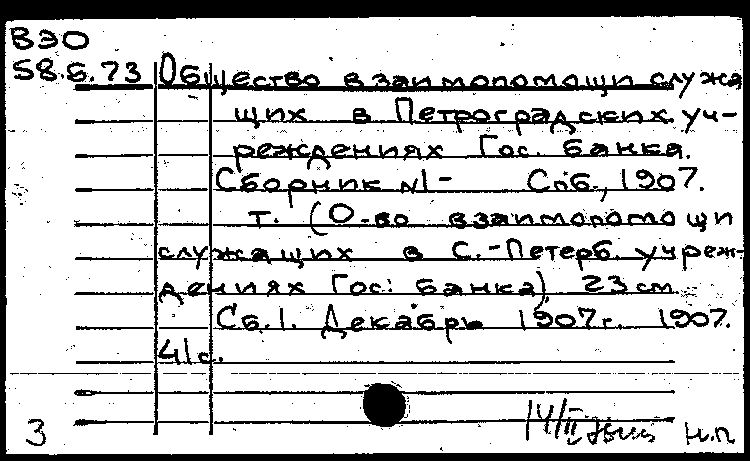 ВЭО
58.6.73 Общество взаимопомощи служа
щих в Петроградских уч-
реждениях Гос. банка.
Сборник №1- Спб., 1907.
т. (О-во взаимопомощи
служащих в С.-Петерб. учреж-
дениях Гос. банка) 23 см.
Сб.1. Декабрь 1907г. 1907.
41с.
14/II
3 н.п.